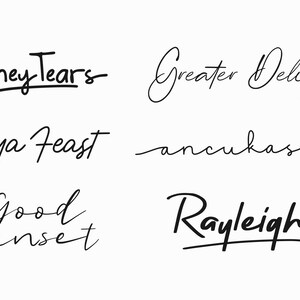 neyTears
Greater Deli
ya Feast
ancukas
Good
unset
Rayleigh